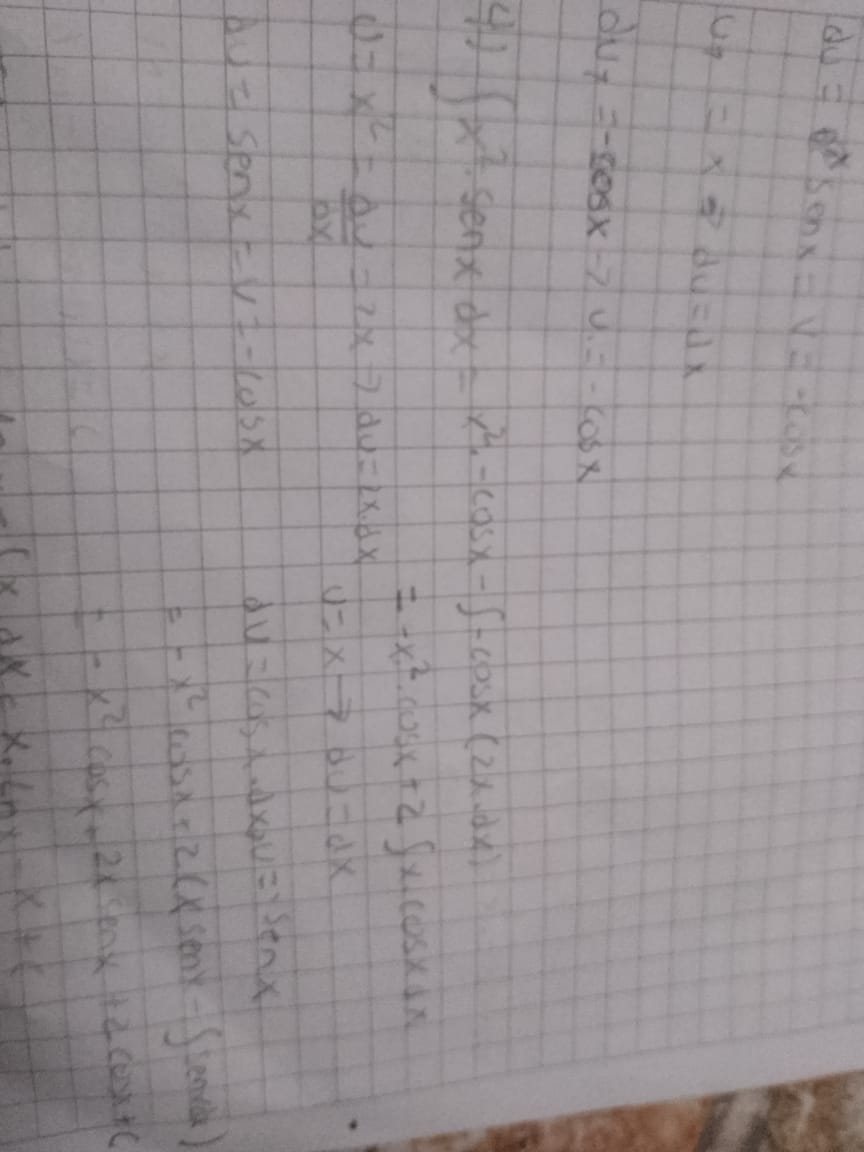 du = sen x = v = -cos x
u₂ = x ⇒ du = dx
du₂ = -cos x → u = -cos x
4) ∫ x². sen x dx = x². -cos x - ∫ -cos x (2x.dx)
= -x². cos x + 2 ∫ x. cos x dx
u = x² = du/dx = 2x → du = 2x.dx
u = x → du = dx
du = sen x = v = -cos x
dv = cos x. dx → v = sen x
= -x² cos x + 2 (x sen x - ∫ sen x dx)
= -x² cos x + 2x sen x + 2 cos x + C
x dx = x. ln x - x + C